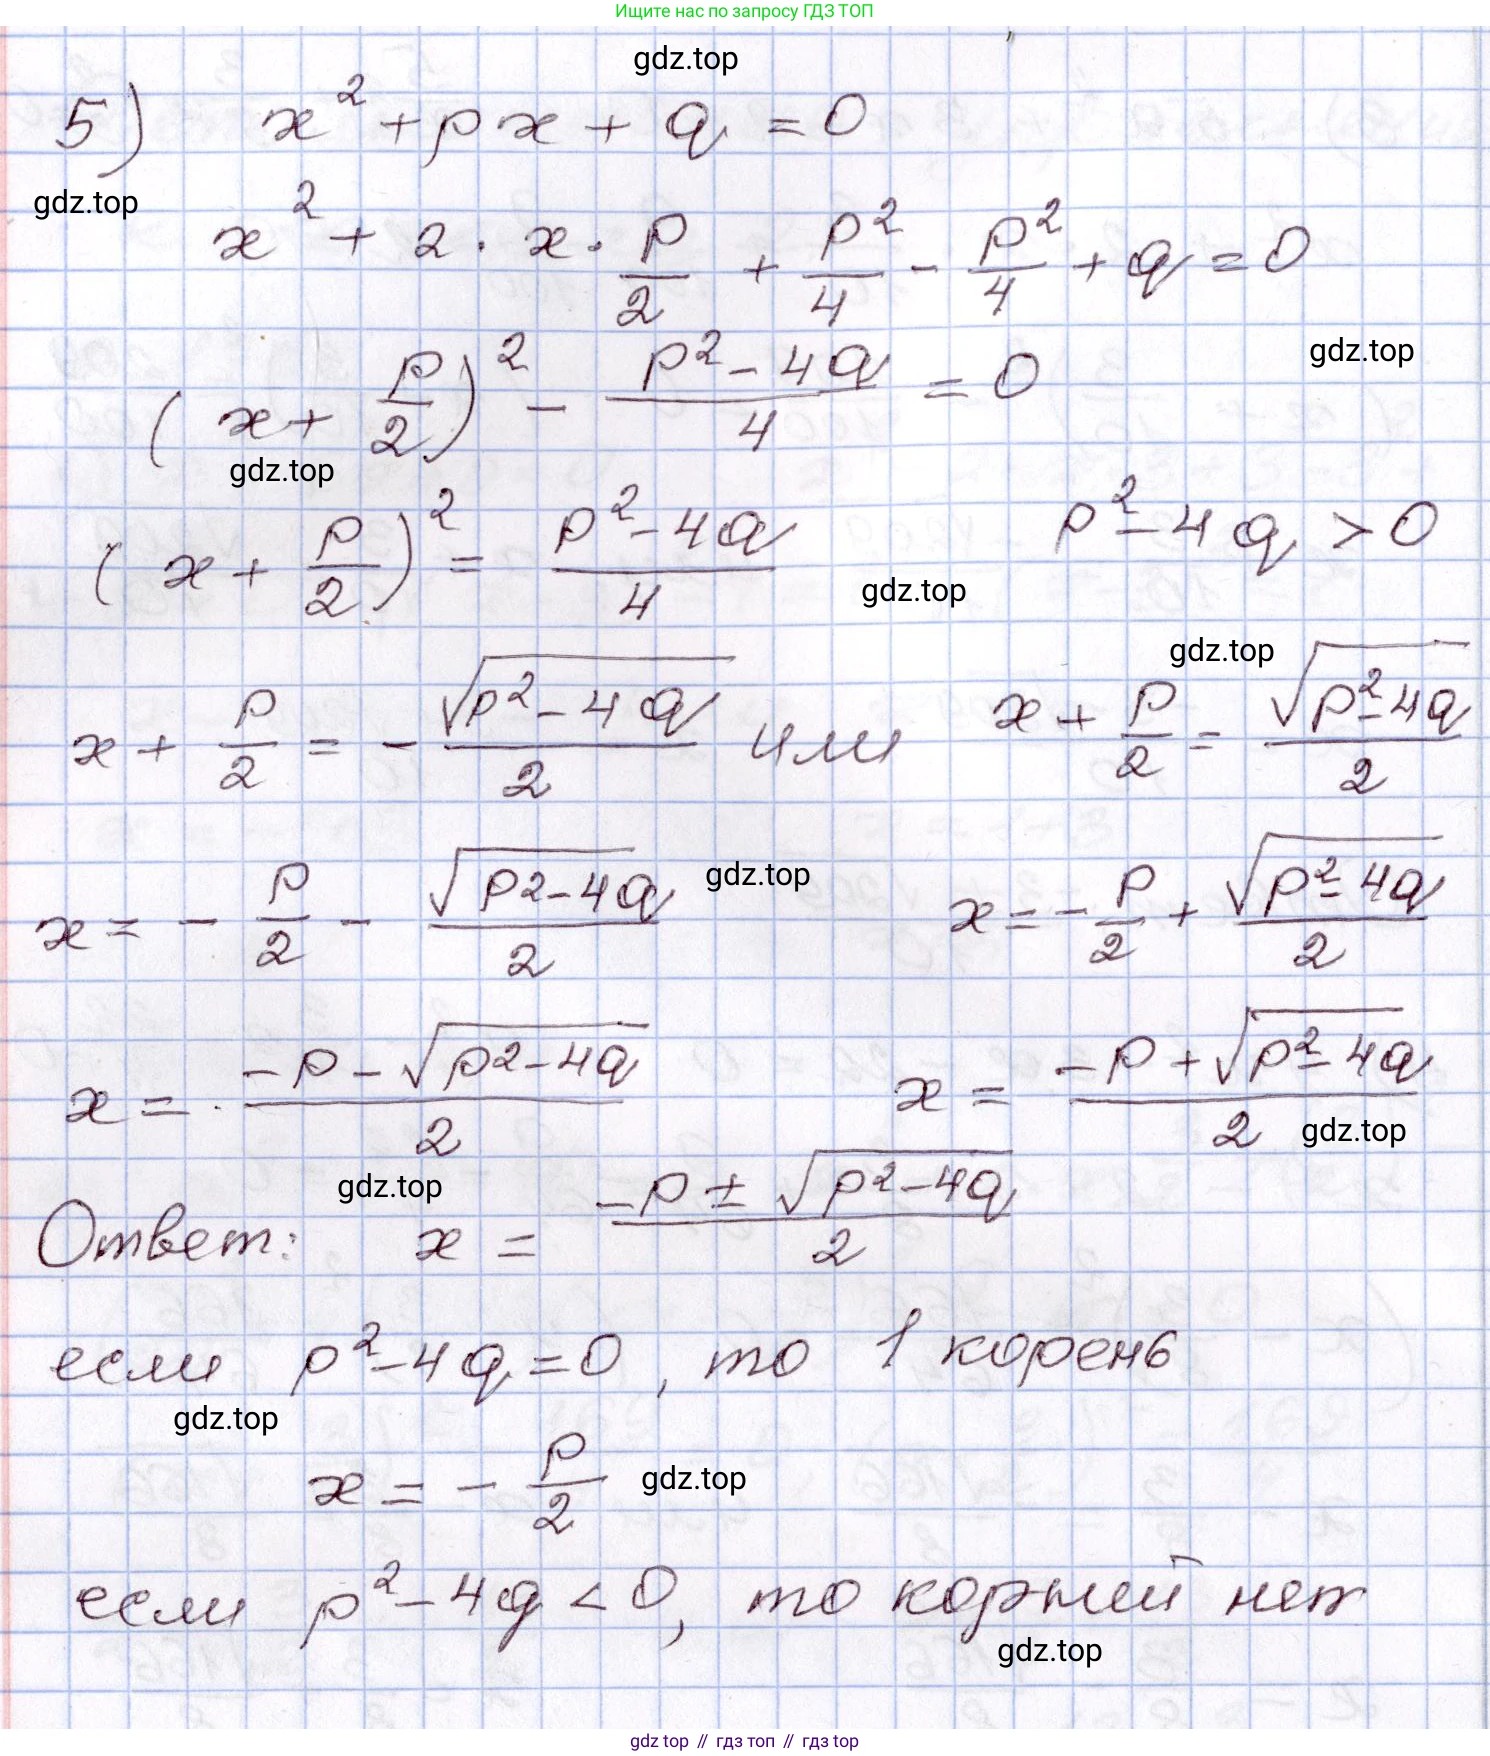 Ищите нас по запросу ГДЗ ТОП
gdz.top
5) x² + px + q = 0
gdz.top
x² + 2 · x · p/2 + p²/4 - p²/4 + q = 0
gdz.top
(x + p/2)² - (p² - 4q)/4 = 0
gdz.top
(x + p/2)² = (p² - 4q)/4 p² - 4q > 0
gdz.top
gdz.top
x + p/2 = - √(p² - 4q)/2 или x + p/2 = √(p² - 4q)/2
gdz.top
x = - p/2 - √(p² - 4q)/2 x = - p/2 + √(p² - 4q)/2
x = (-p - √(p² - 4q))/2 x = (-p + √(p² - 4q))/2
gdz.top
gdz.top
Ответ: x = (-p ± √(p² - 4q))/2
если p² - 4q = 0, то 1 корень
gdz.top
x = - p/2
gdz.top
если p² - 4q < 0, то корней нет
gdz.top
gdz top // гдз топ // гдз top